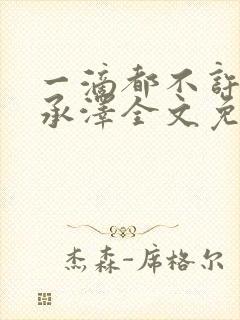 一滴都不许
承泽全文免
杰森-席格尔